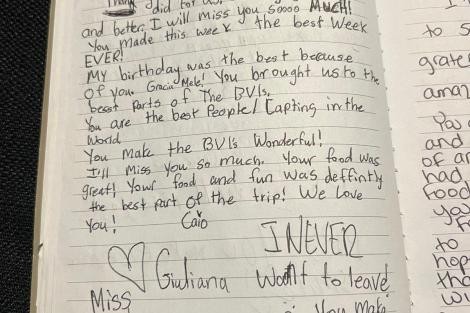 Thank did for us,
and better. I will miss you soooo MUCH!
You made this week the best week
EVER!
My birthday was the best because
of you Gracia Mele! You brought us to the
besst parts of The BVIs,
You are the best People/Capting in the
World
You Make the BVIs Wonderful!
I'll Miss You so much. Your food was
great! Your food and fun was deffintly
the best part of the trip! We Love
You!
Caio
I NEVER
Giuliana Want to leave
Miss
You Make
to
grate
aman
You
and
of a
had
food
to
hop
tha